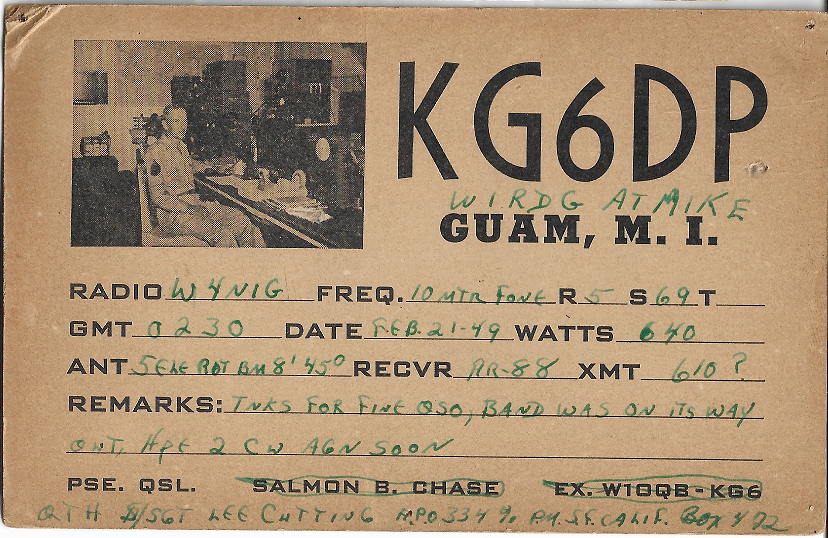 KG6DP
W1RDG AT MIKE
GUAM, M. I.
RADIO W4NIG FREQ. 10 MTR FONE R 5 S 69 T
GMT 0230 DATE FEB. 21-49 WATTS 640
ANT 5 ELE ROT BM 8' 45° RECVR AR-88 XMT 610 ?
REMARKS: TNKS FOR FINE QSO, BAND WAS ON ITS WAY
OUT, HPE 2 CW AGN SOON
PSE. QSL. SALMON B. CHASE EX. W1OQB - KG6
QTH S/SGT LEE CUTTING A.P.O 334 % P.M. S.F. CALIF. BOX 492